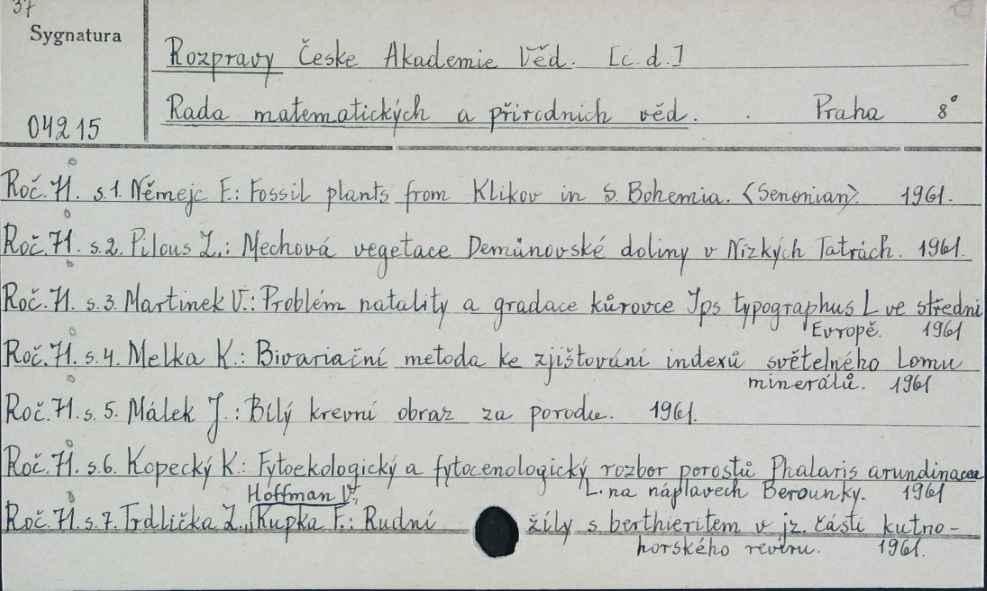 37
Sygnatura
04215
Rozpravy České Akademie Věd. [c.d.]
Rada matematických a přirodnich věd. Praha 8°
Roč. 71. s. 1. Němejc F.: Fossil plants from Klikov in S. Bohemia. <Senonian>. 1961.
Roč. 71. s. 2. Pilous Z.: Mechová vegetace Demänovské doliny v Nízkých Tatrách. 1961.
Roč. 71. s. 3. Martinek V.: Problém natality a gradace kůrovce Ips typographus L ve střední
Evropě. 1961
Roč. 71. s. 4. Melka K.: Bivariační metoda ke zjištování indexů světelného lomu
minerálů. 1961
Roč. 71. s. 5. Málek J.: Bílý krevní obraz za porodu. 1961.
Roč. 71. s. 6. Kopecký K.: Fytoekologický a fytocenologický rozbor porostů Phalaris arundinacea
L. na náplavech Berounky. 1961
Hoffman V.,
Roč. 71. s. 7. Trdlička Z., Kupka F.: Rudní žíly s berthieritem v jz. části kutno-
horského revíru. 1961.